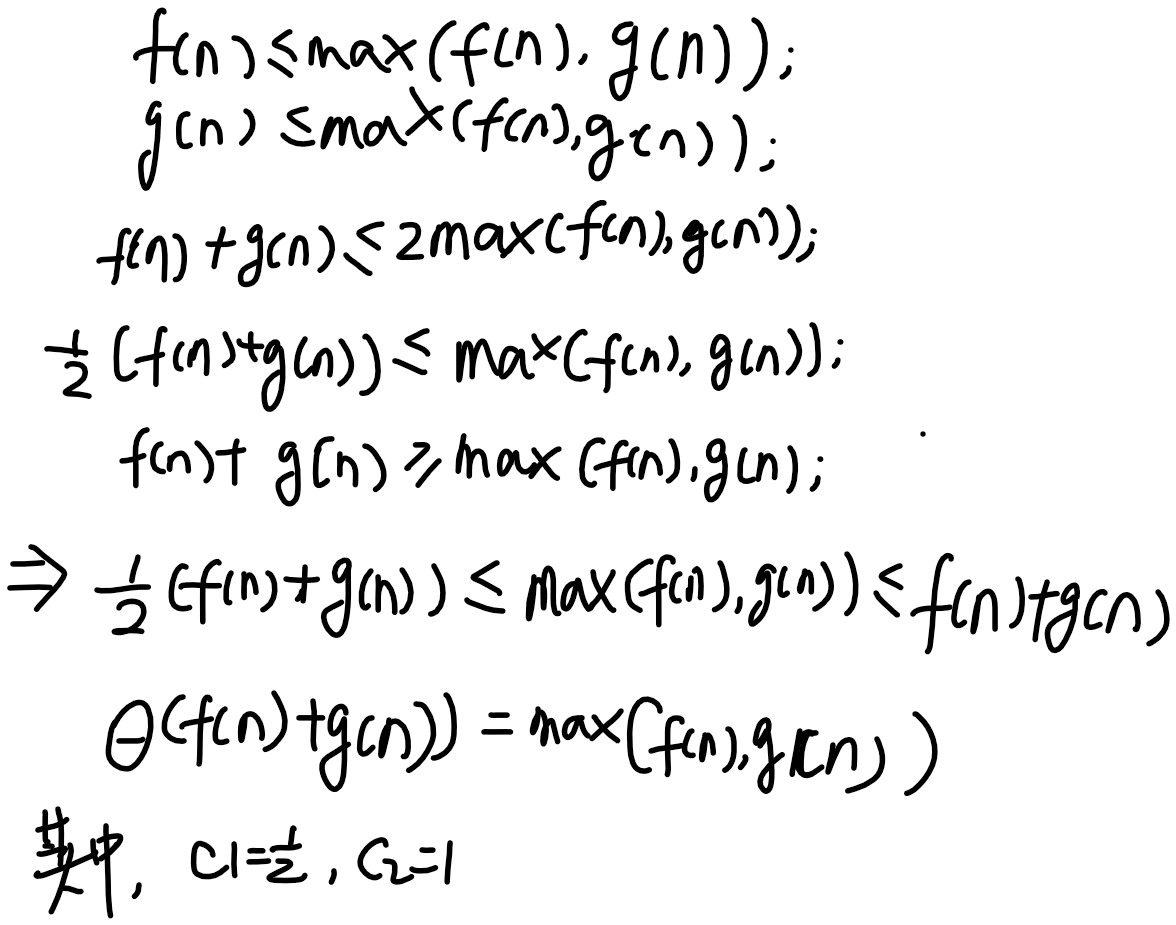 f(n) ≤ max(f(n), g(n));
g(n) ≤ max(f(n), g(n));
f(n) + g(n) ≤ 2max(f(n), g(n));
1/2 (f(n)+g(n)) ≤ max(f(n), g(n));
f(n) + g(n) ≥ max (f(n), g(n);
⇒ 1/2 (f(n)+g(n)) ≤ max(f(n), g(n)) ≤ f(n)+g(n)
Θ(f(n)+g(n)) = max(f(n), g(n))
其中, C1=1/2, C2=1